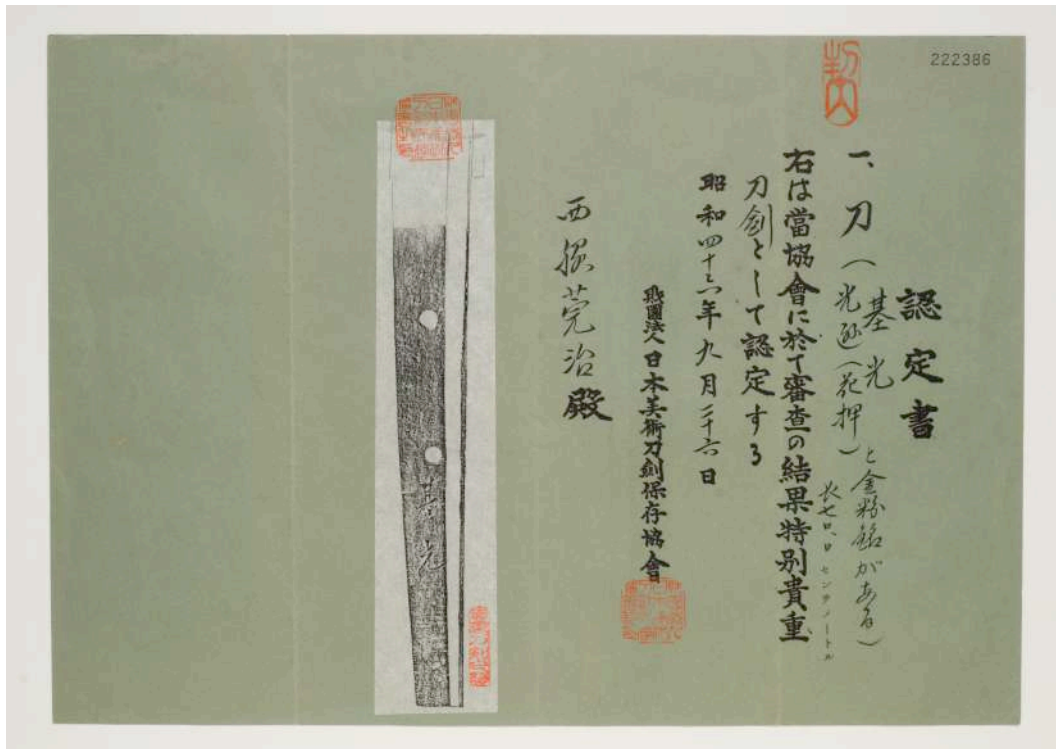 222386
認定書
一、刀(基光
光遜(花押)と金粉銘がある)
長七〇、〇センチメートル
右は當協會に於て審査の結果特別貴重
刀剣として認定する
昭和四十六年九月二十六日
財團法人日本美術刀剣保存協會
西 莞治殿
基光